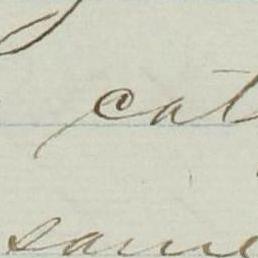 cat
same